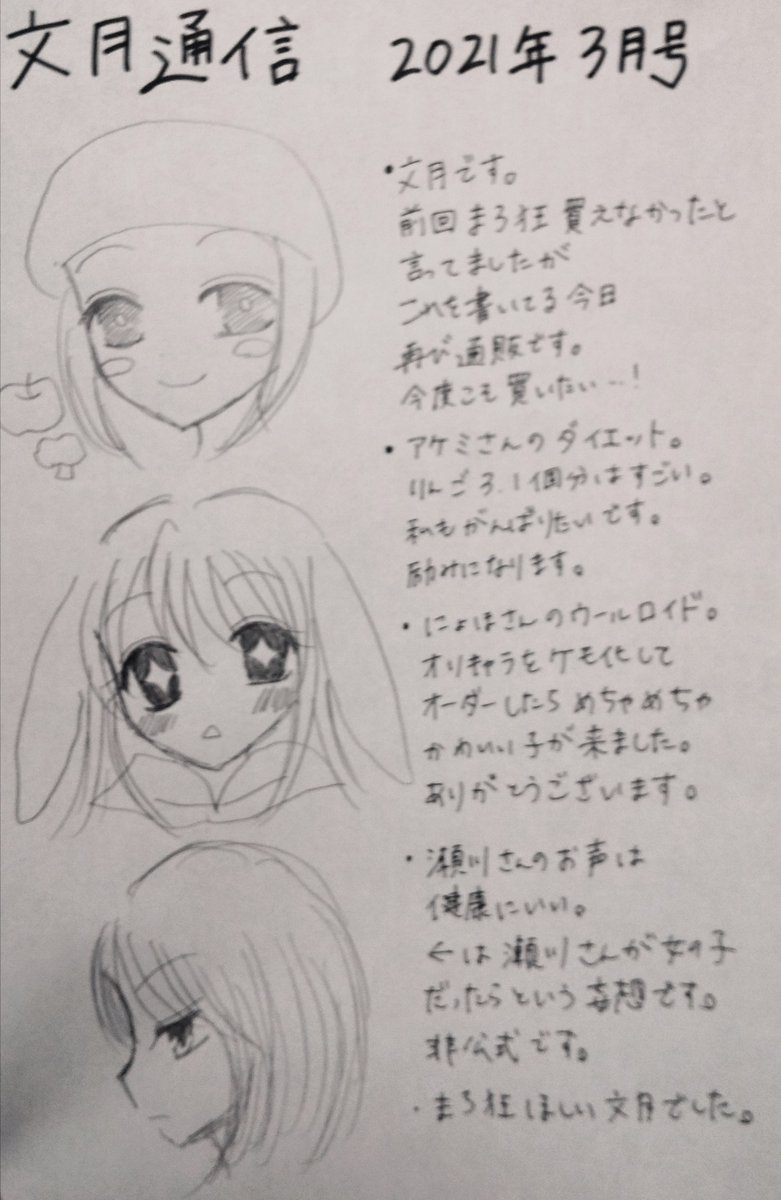 文月通信 2021年3月号
・文月です。
前回まろ狂買えなかったと
言ってましたが
これを書いてる今日
再び通販です。
今度こそ買いたい…!
・アケミさんのダイエット。
りんご3.1個分はすごい。
私もがんばりたいです。
励みになります。
・にょほさんのウールロイド。
オリキャラをケモ化して
オーダーしたらめちゃめちゃ
かわいい子が来ました。
ありがとうございます。
・瀬川さんのお声は
健康にいい。
←は瀬川さんが女の子
だったらという妄想です。
非公式です。
・まろ狂ほしい文月でした。